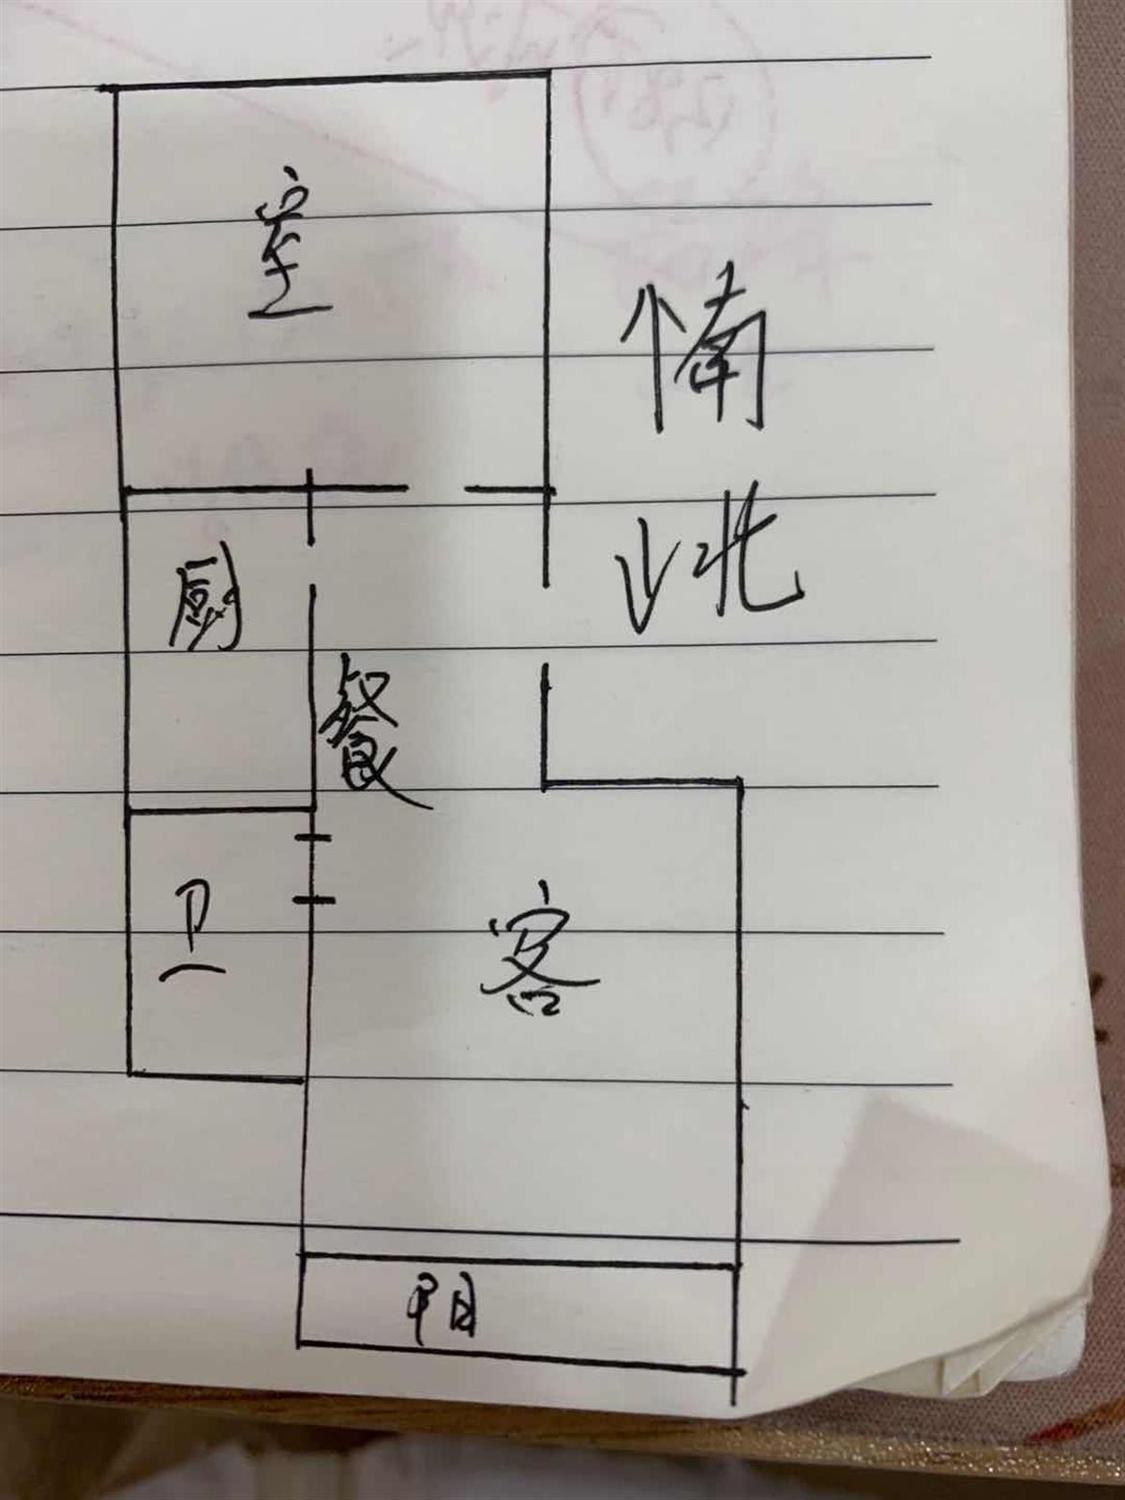 室
南
北
厨
餐
卫
客
阳